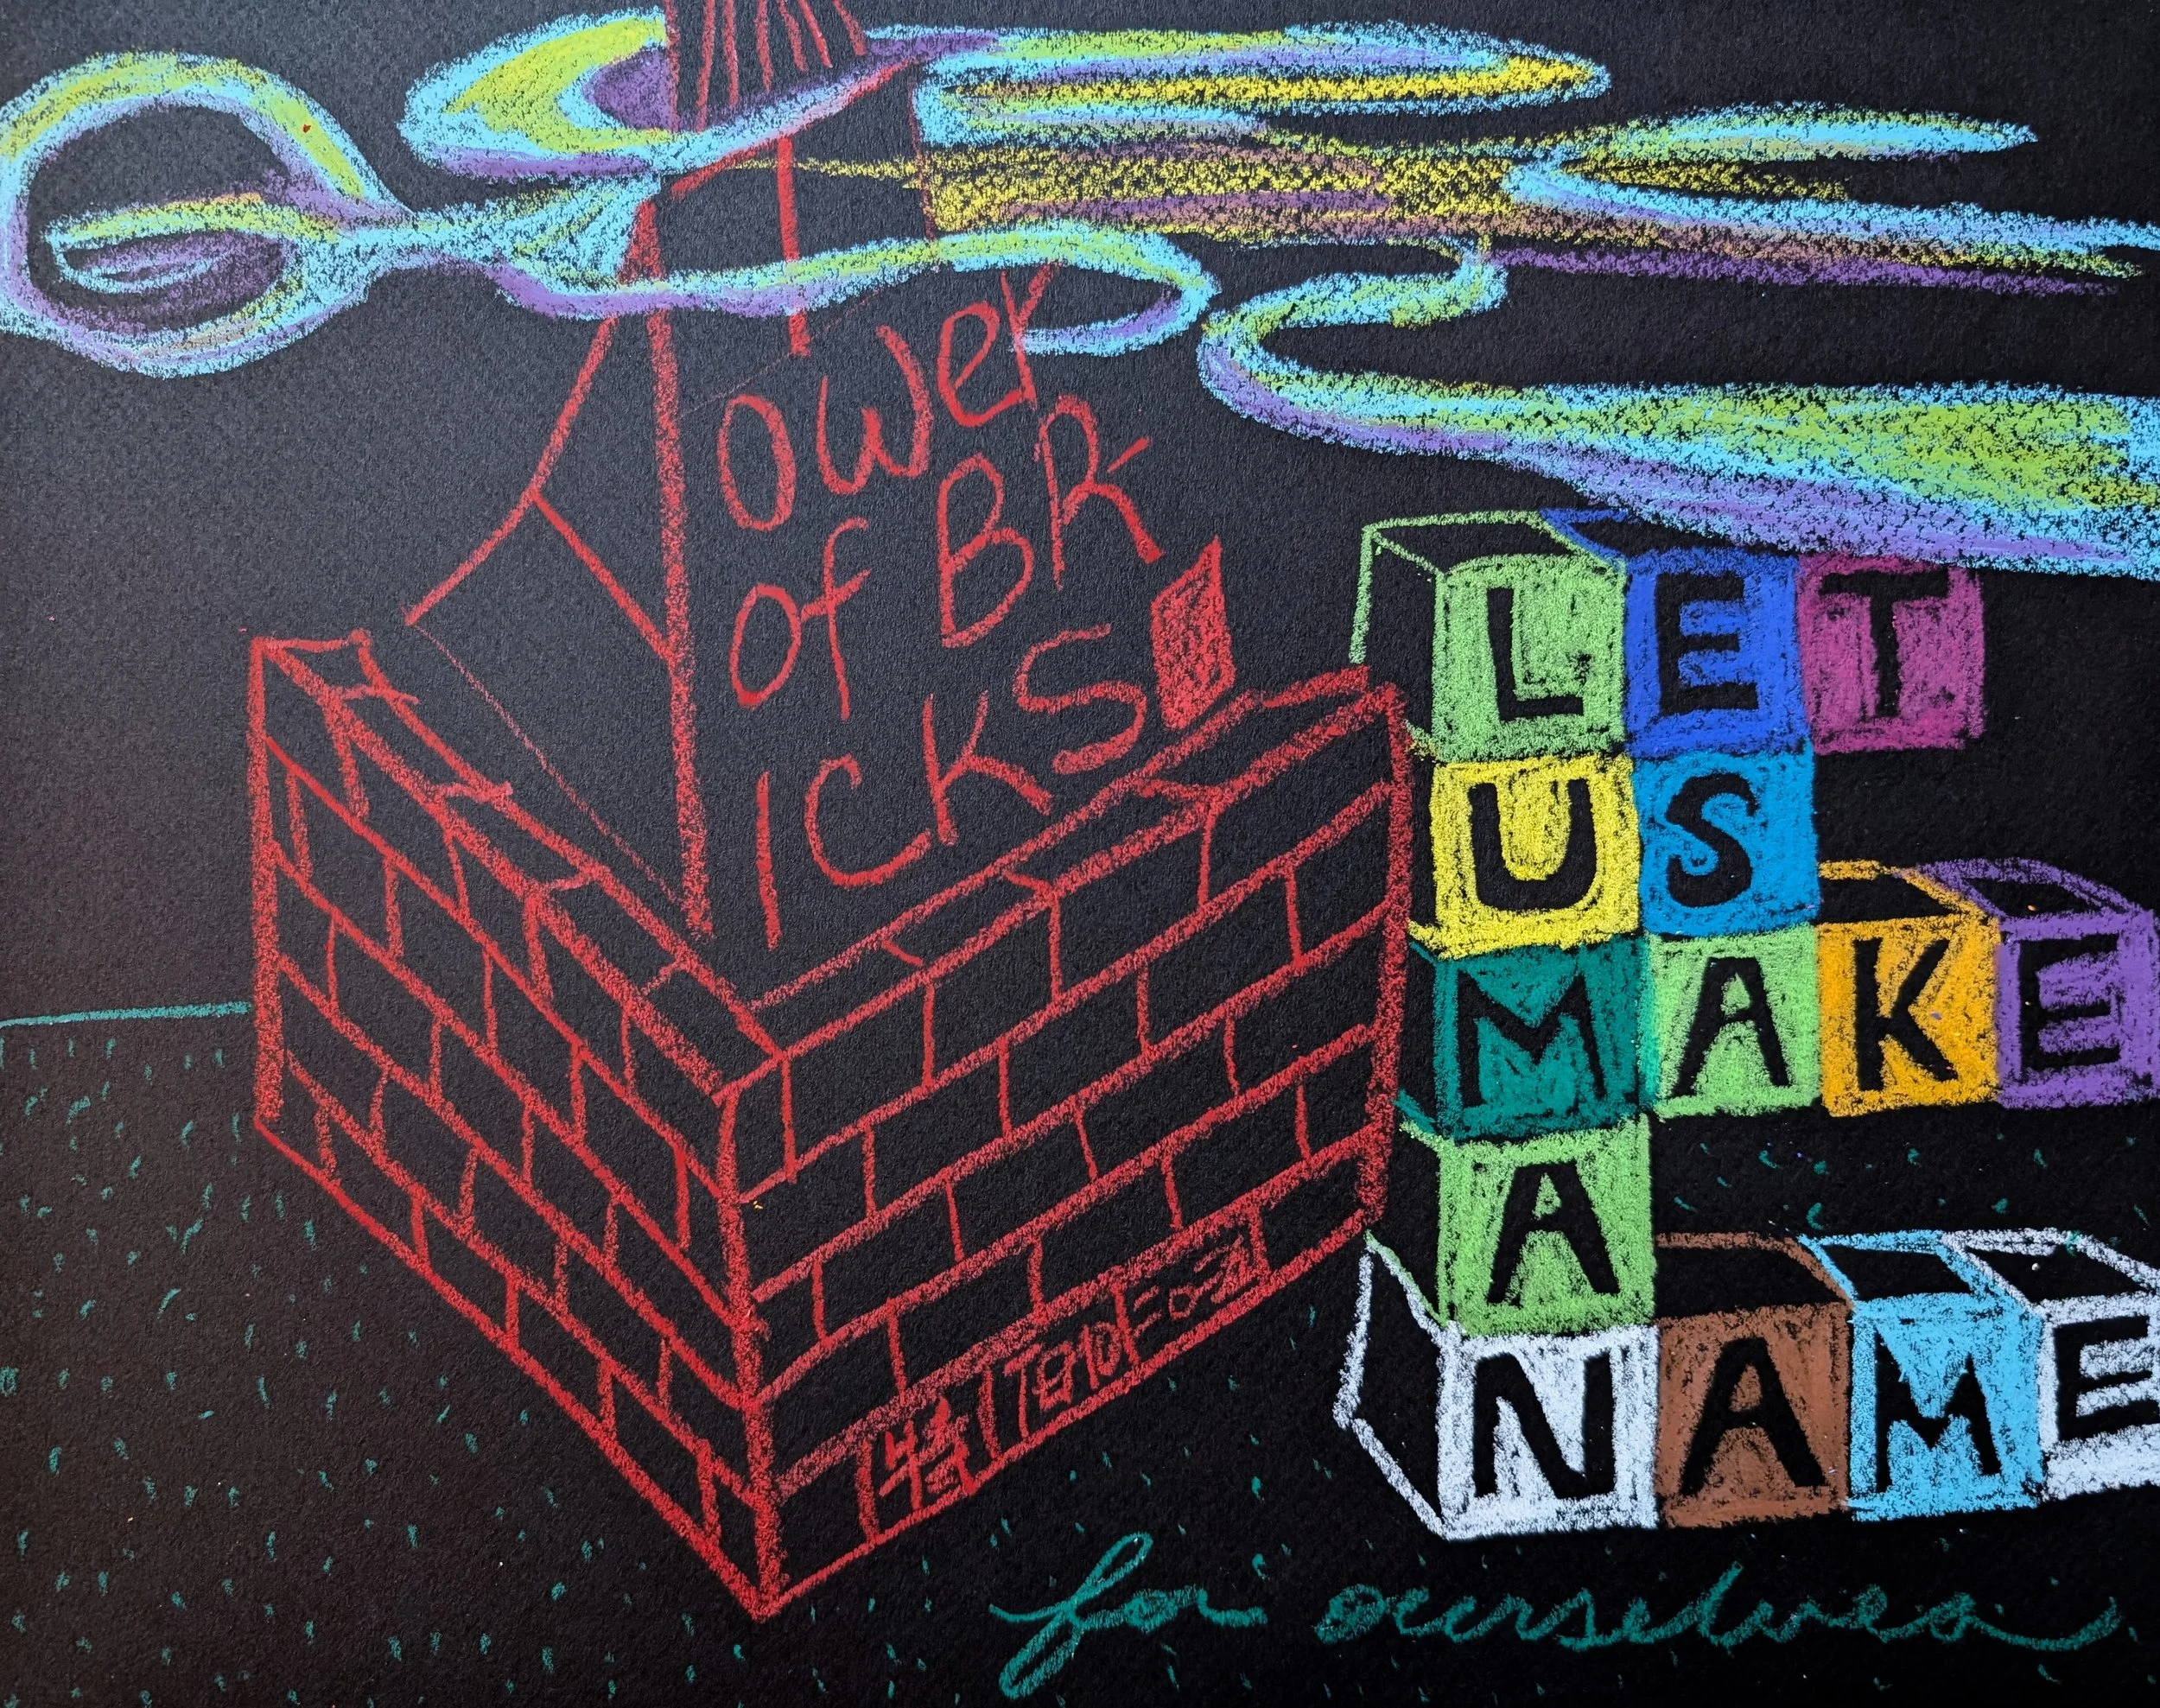 ower
of BR-
ICKS
LET
US
MAKE
A
NAME
for ourselves